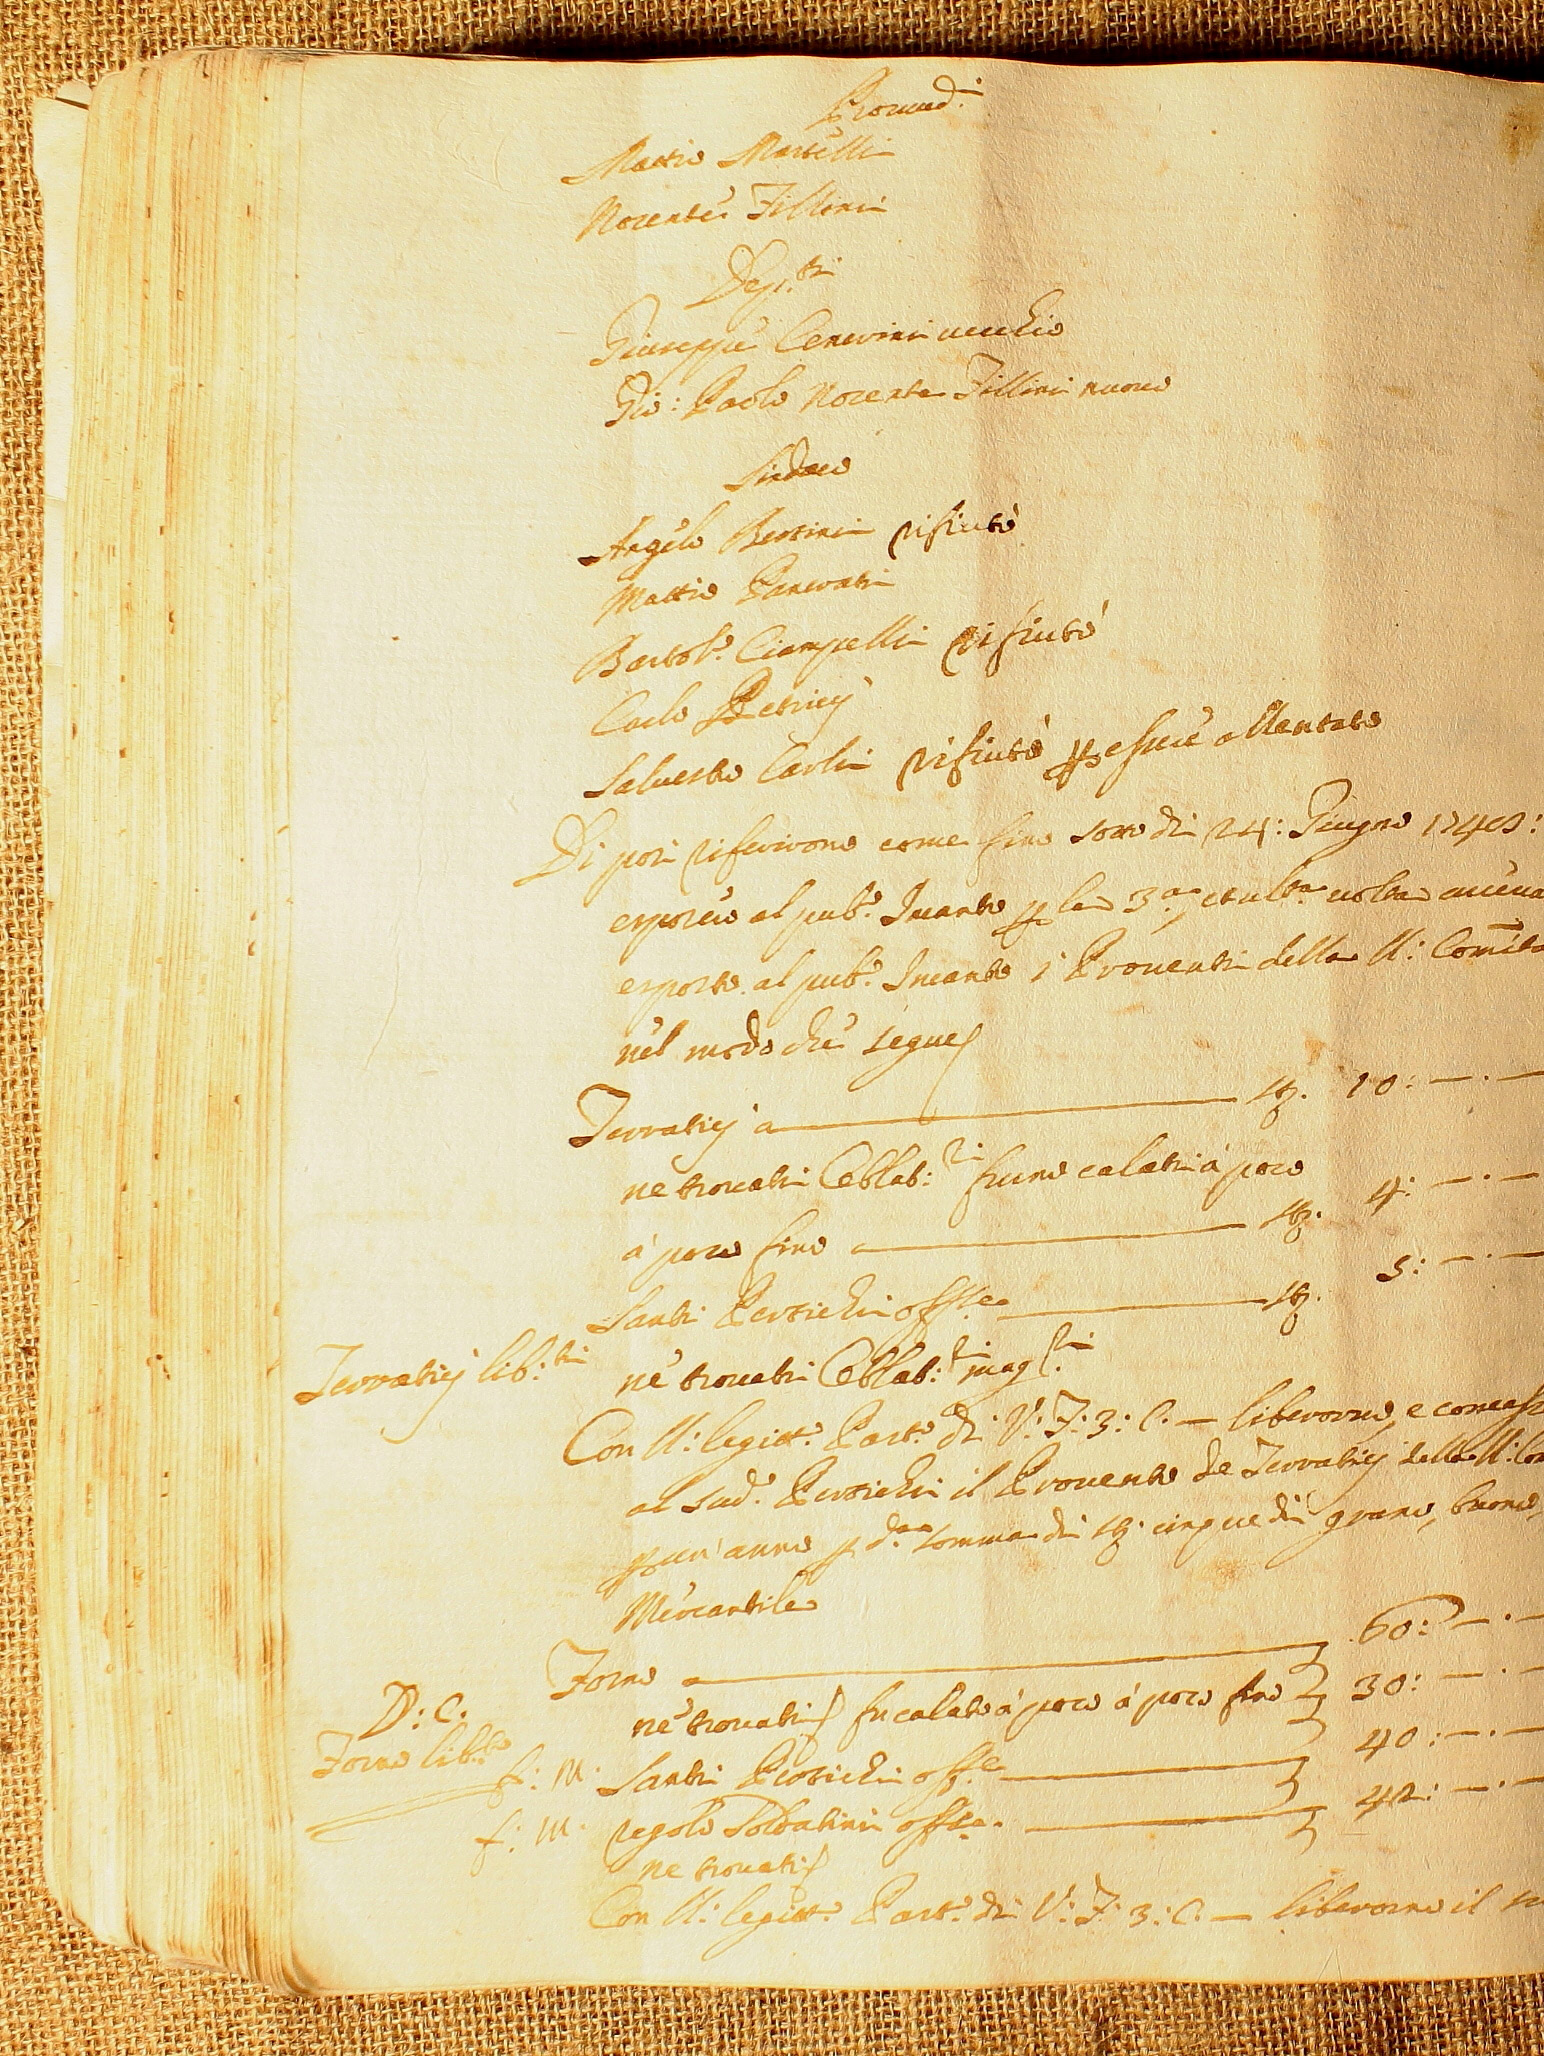 Proued.i
Mattio Martelli
Norentio Fillini
Dep.ti
Giuseppe Cenevini uecchio
Gio: Paolo Norenta Fillini nuouo
Sindaco
Angelo Bertini rifiutò
Mattio Panevati
Bartol.o Ciampelli rifiutò
Carlo Petricj
Saluestro Carlini rifiutò p essere allentato
Di poi riferirono come fino sotto di 24: Giugno
esporre al pub.o Incanto p la 3.a, et ult.a uolta
esposte al pub.o Incanto i Prouenti della
nel modo che segue
Terraticj a st. 10: — · —
ne trouati Oblat:ri furno calati à poco
à poco fino a st. 4: — · —
Santi Pertichi offse st. 5: — · —
Terraticj lib:ti
ne trouati Oblat:ri mag.ri
Con legitt.o Part.o di V: F: 3: C. — liberorno, e
al sud.o Pertichi il Prouento de Terraticj della
p un' anno p d.a somma di st. cinque di grano, buono,
Mercantile
Forno a 60: — · —
ne trouatisi fu calato à poco à poco fino 30: — · —
D: C.
Forno lib:to
f: m. Santi Pertichi offse 40: — · —
f: m. regolo Soldatini offse. 42: — · —
ne trouatisi
Con legitt.o Part.o di V: F: 3: C. — liberorno il